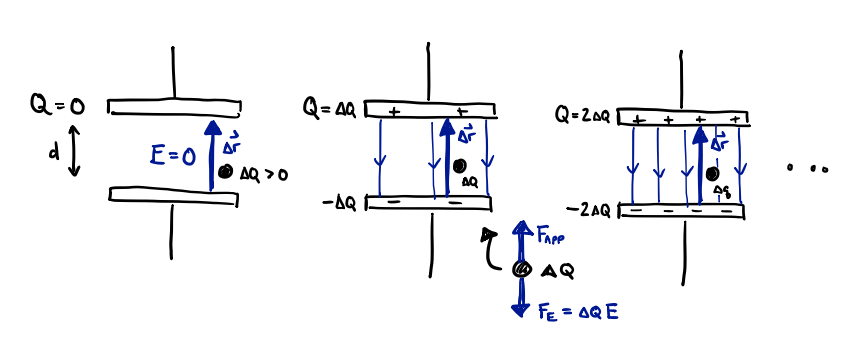 Q = 0
d
E = 0
Δr⃗
ΔQ > 0
Q = ΔQ
+ +
Δr⃗
ΔQ
−ΔQ
− −
F_APP
ΔQ
F_E = ΔQ E
Q = 2ΔQ
+ + + +
Δr⃗
Δq
−2ΔQ
− − − −
...